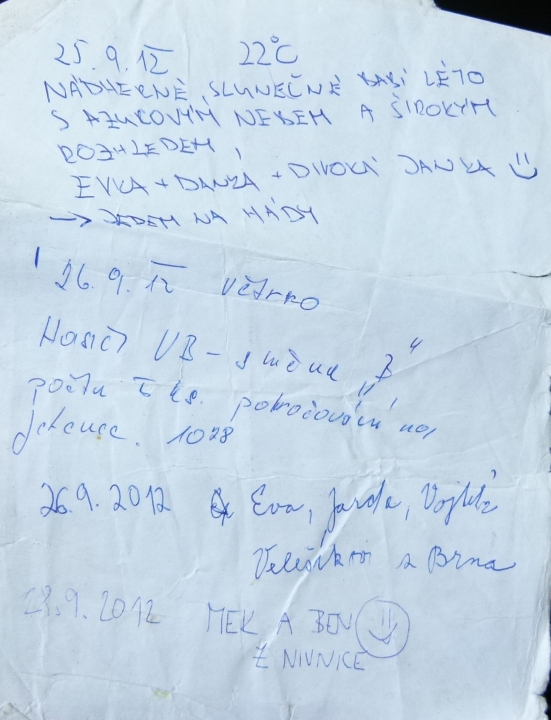 25.9.12 22°C
NÁDHERNÉ SLUNEČNÉ BABÍ LÉTO
S AZUROVÝM NEBEM A ŠIROKÝM
ROZHLEDEM,
EVKA + DANKA + DIVOKÁ JANKA
→ JEDEM NA HÁDY
26.9.12 větrno
Hasiči UB - směna "B"
počtu 5 ks. pokračování na
Jelenec. 1028
26.9.2012 Eva, Jarda, Vojtěch
z Brna
28.9.2012 MEK A BEN
Z NIVNICE